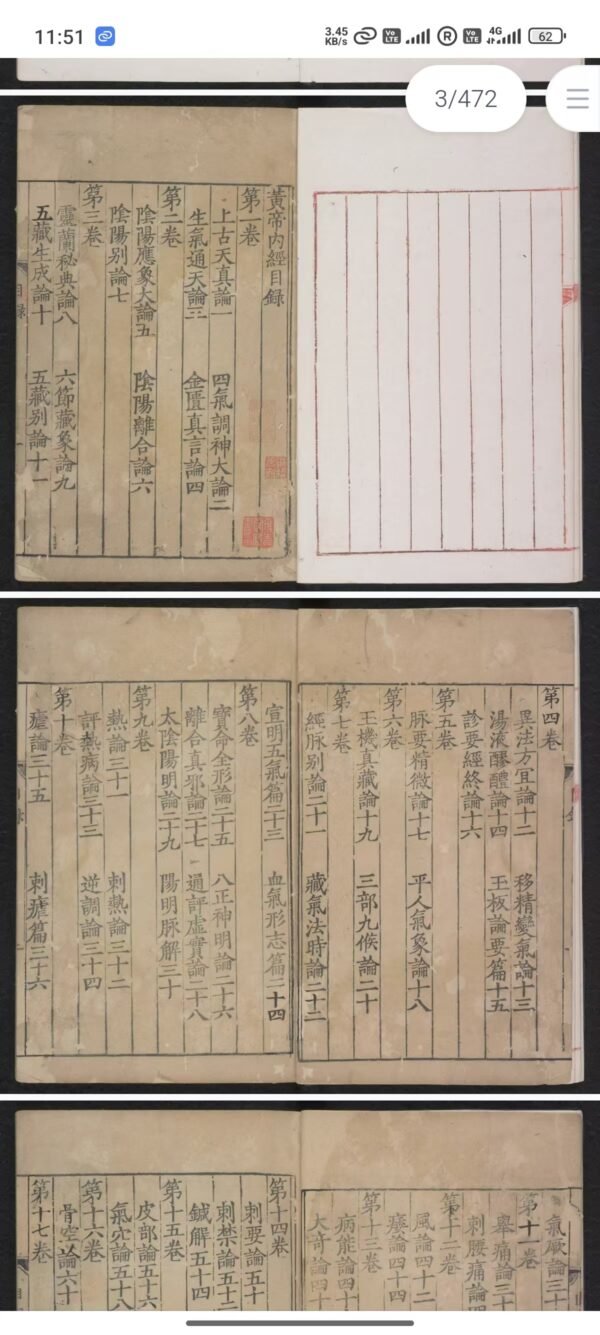 11:51
3.45 KB/s
Vo LTE
R
Vo LTE
4G
62
3/472
黃帝内經目錄
第一卷
上古天真論一 四氣調神大論二
生氣通天論三 金匱真言論四
第二卷
陰陽應象大論五 陰陽離合論六
陰陽别論七
第三卷
靈蘭秘典論八 六節藏象論九
五藏生成論十 五藏别論十一
目錄
第四卷
異法方宜論十二 移精變氣論十三
湯液醪醴論十四 玉板論要篇十五
診要經終論十六
第五卷
脉要精微論十七 平人氣象論十八
第六卷
玉機真藏論十九 三部九候論二十
第七卷
經脉别論二十一 藏氣法時論二十二
宣明五氣篇二十三 血氣形志篇二十四
第八卷
寶命全形論二十五 八正神明論二十六
離合真邪論二十七 通評虛實論二十八
太陰陽明論二十九 陽明脉解三十
第九卷
熱論三十一 刺熱論三十二
評熱病論三十三 逆調論三十四
第十卷
瘧論三十五 刺瘧篇三十六
氣厥論三十
第十一卷
舉痛論三十
刺腰痛論四
第十二卷
風論四十二
痿論四十四
第十三卷
病能論四十
大奇論四十
第十四卷
刺要論五十
刺禁論五十二
鍼解五十四
第十五卷
皮部論五十六
氣穴論五十八
第十六卷
骨空論六十
第十七卷